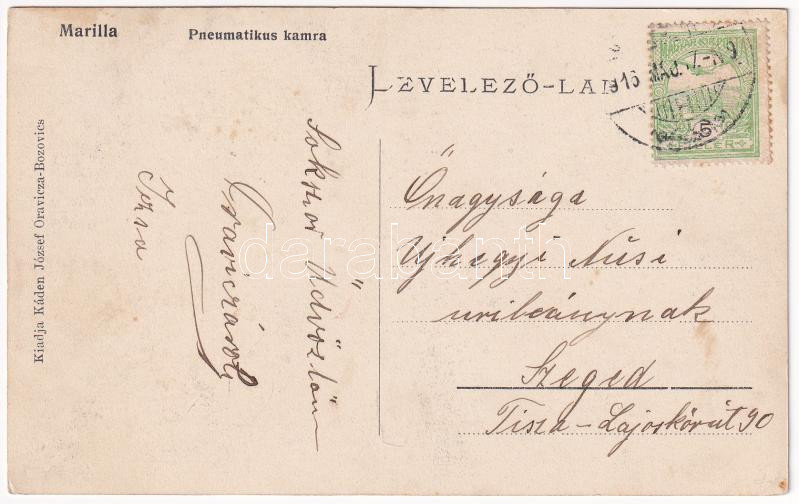 Marilla
Pneumatikus kamra
LEVELEZŐ-LAP
916 MÁJ.
5
Kiadja Káden József Oravicza-Bozovics
Sokszor üdvözlöm
Oraviczáról
Önagysága
Ujhegyi Nusi
urileánynak
Szeged
Tisza-Lajoskörút 90
darabanth